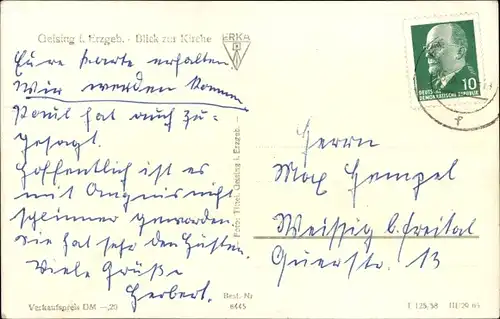 Geising i. Erzgeb. - Blick zur Kirche
ERKA
Eure Karte erhalten
Wir werden kommen
Paul hat auch zu-
gesagt.
Hoffentlich ist es
mit nicht
schlimmer geworden
sie hat sehr den Husten.
Viele Grüße
Herbert.
Foto: Geising i. Erzgeb.
10
DEUTSCHE
DEMOKRATISCHE REPUBLIK
Herrn
Max Hempel
Weissig b. Freital
Querstr. 13
Verkaufspreis DM -,20
Best.-Nr
8445
T 125/58 III/29 65